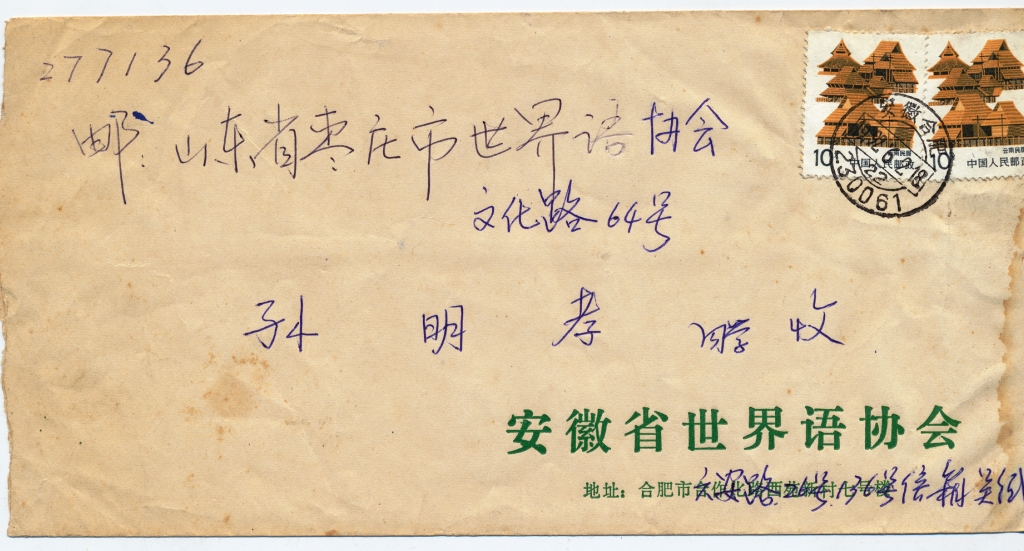 277136
邮: 山东省枣庄市世界语协会
文化路64号
孙明孝 同学 收
安徽省世界语协会
地址: 合肥市
六安路 号136号信箱 吴
10 中国人民邮政
10 中国人民邮政
云南民居
安徽合肥
230061